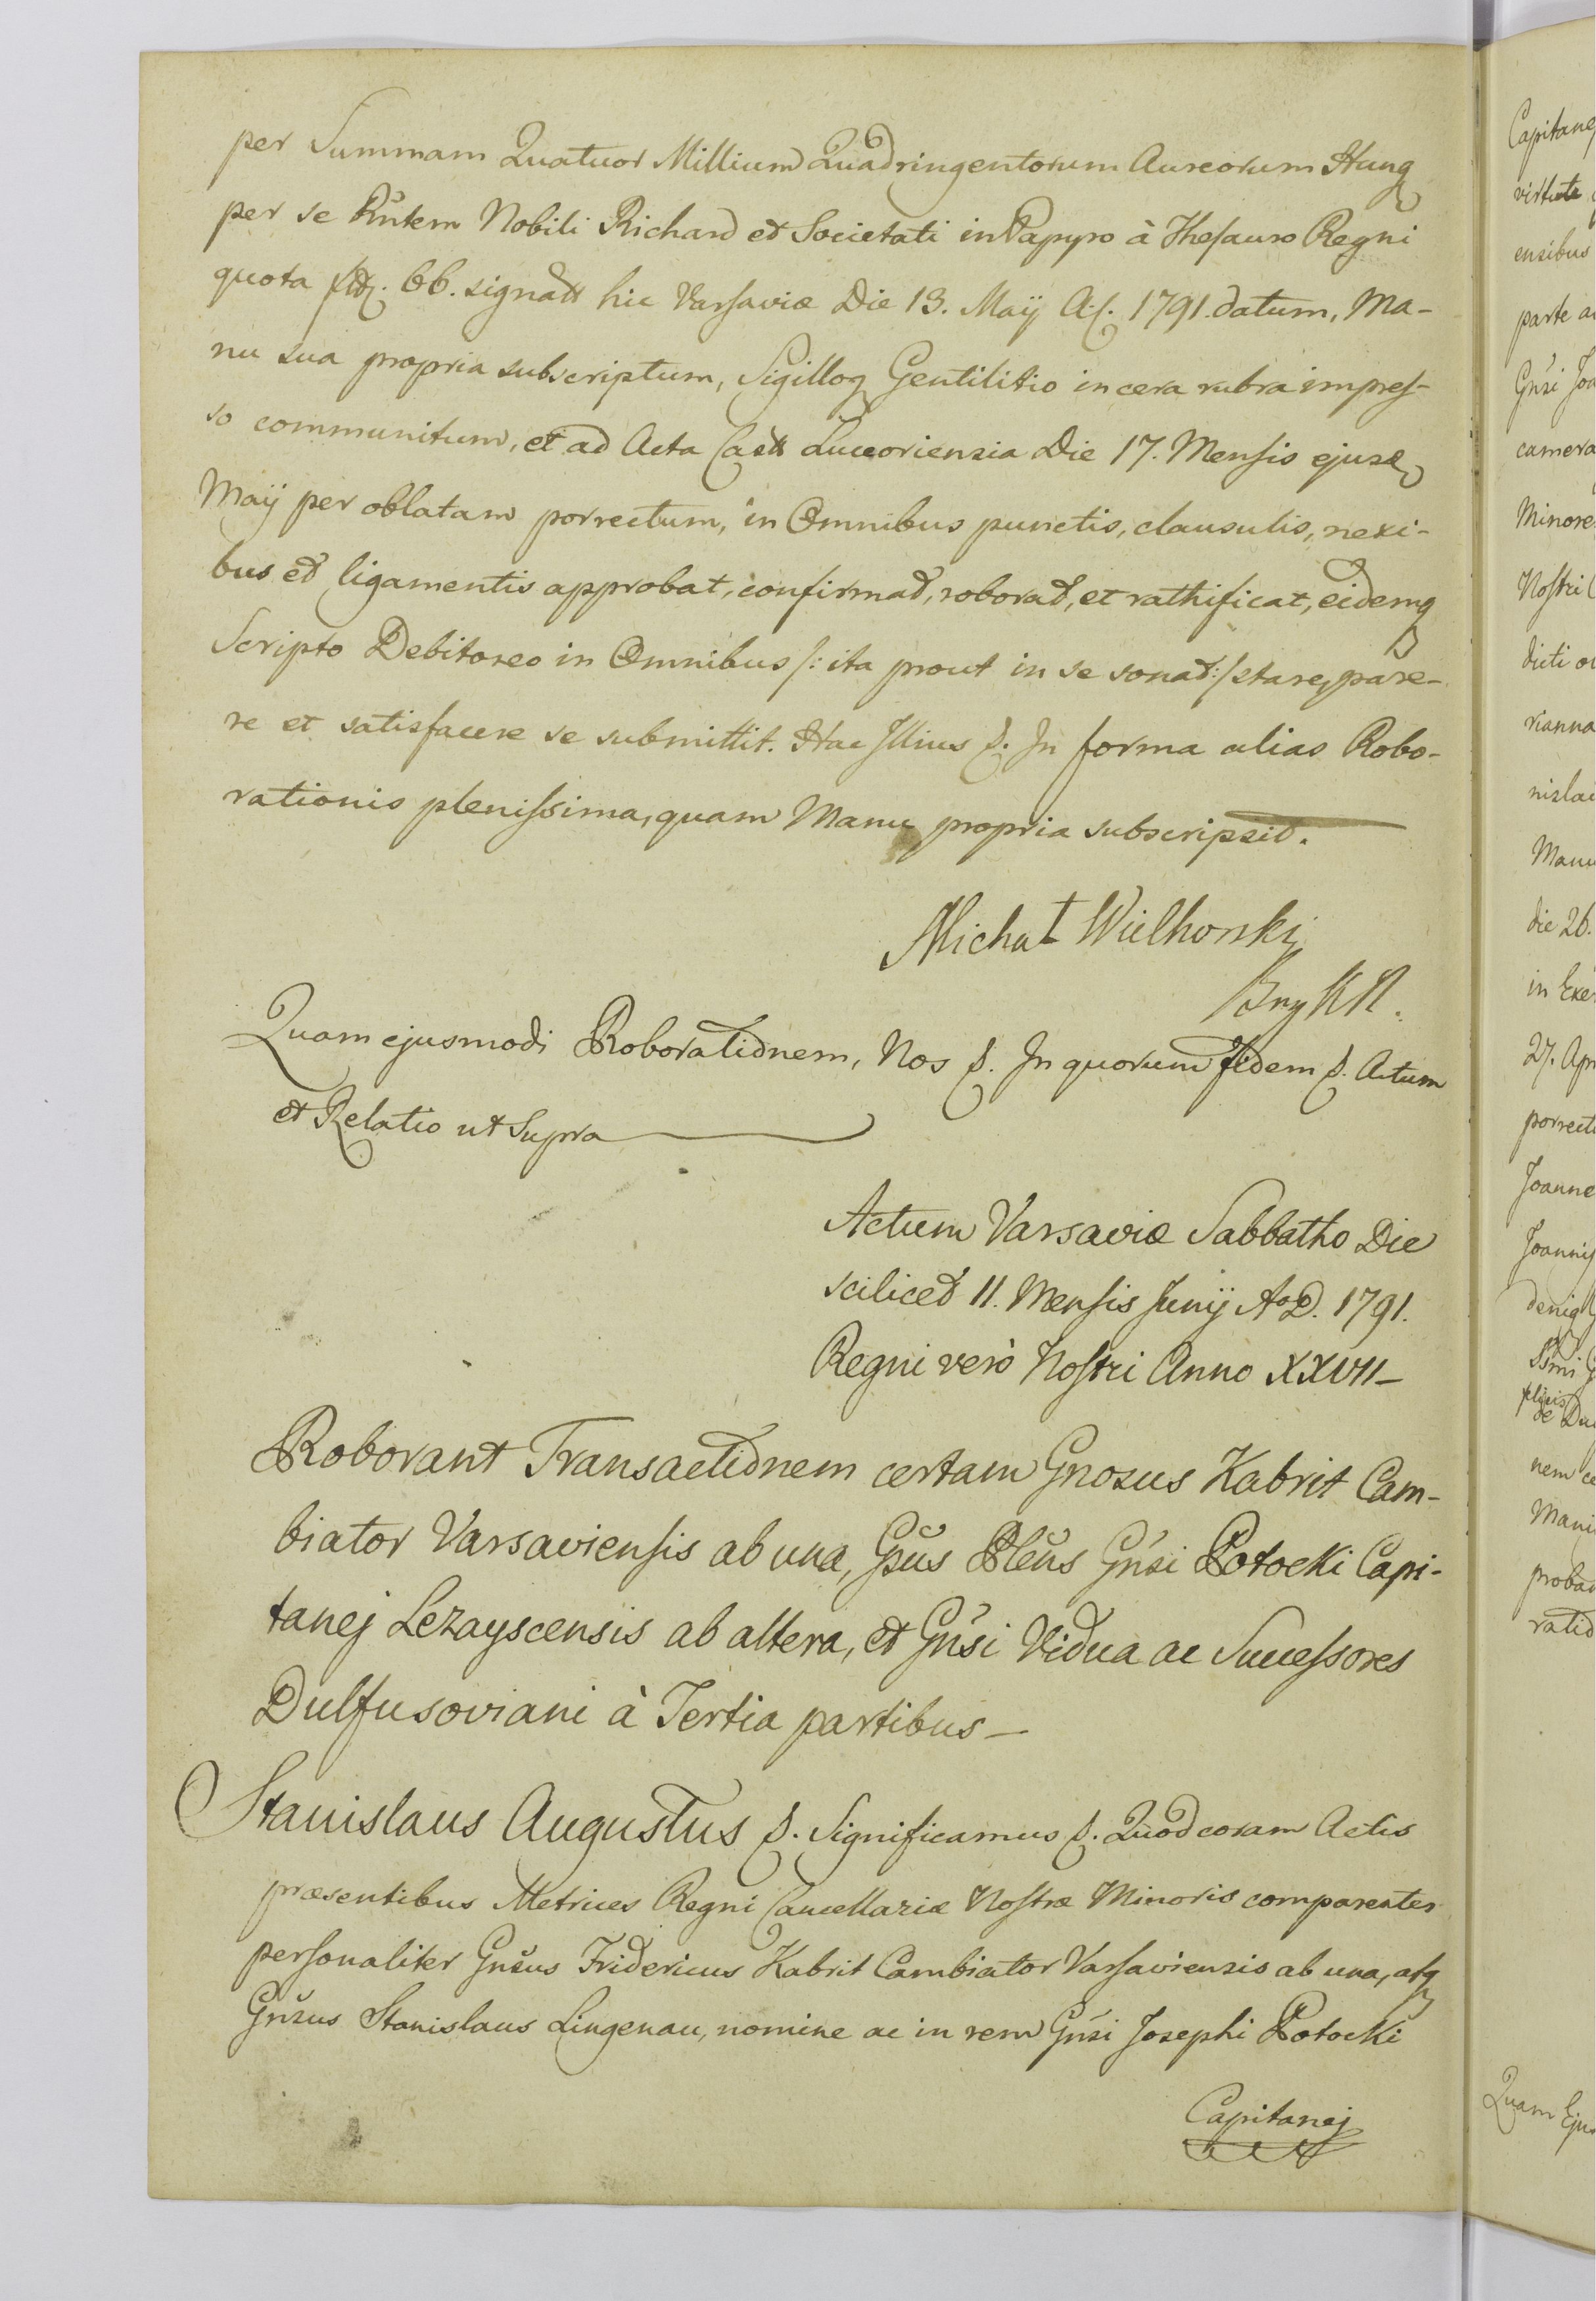 per Summam Quatuor Millium Quadringentorum Aureorum Hung
per se Rn̄tem Nobili Richard et Societati in Papyro à Thesauro Regni
quota 66. signatt hic Varsaviæ Die 13. Maÿ A. 1791. datum, Ma-
nu sua propria subscriptum, Sigilloq Gentilitio in cera rubra impres-
so communitum, et ad Acta Castt Luceoriensia Die 17. Mensis ejusd
Maÿ per oblatam porrectum, in Omnibus punctis, clausulis, nexi-
bus et ligamentis approbat, confirmat, roborat, et rathificat, eidemq
Scripto Debitoreo in Omnibus /: ita prout in se sonat :/ stare, pare-
re et satisfacere se submittit. Hac Illius p. In forma alias Robo-
rationis plenissima, quam Manu propria subscripsit.
Michał Wielhorski
KK
Quam ejusmodi Roborationem, Nos p. In quorum fidem p. Actum
et Relatio ut Supra
Actum Varsaviæ Sabbatho Die
scilicet 11. Mensis Junÿ AoD. 1791.
Regni verò Nostri Anno XXVII-
Roborant Transactionem certam Gnosus Kabrit Cam-
biator Varsaviensis ab una, Gsus Plēns Gn̄si Potocki Capi-
tanej Lezayscensis ab altera, et Gn̄si Vidua ac Successores
Dulfusoviani à Tertia partibus-
Stanislaus Augustus p. Significamus p. Quod coram Actis
præsentibus Metrices Regni Cancellariæ Nostræ Minoris comparentes
personaliter Gn̄sus Fridericus Kabrit Cambiator Varsaviensis ab una, atq
Gn̄sus Stanislaus Lingenau, nomine ac in rem Gn̄si Josephi Potocki
Capitanej
Capitanej
virtute
ensibus
parte
Gn̄si
camera
Minore
Nostri
dicti
rianna
nislai
Manu
die 26.
in Exe
27. Apr
porrect
Joanne
Joannis
deniq
nem
Mani
proba
ratio
Quam Ejus